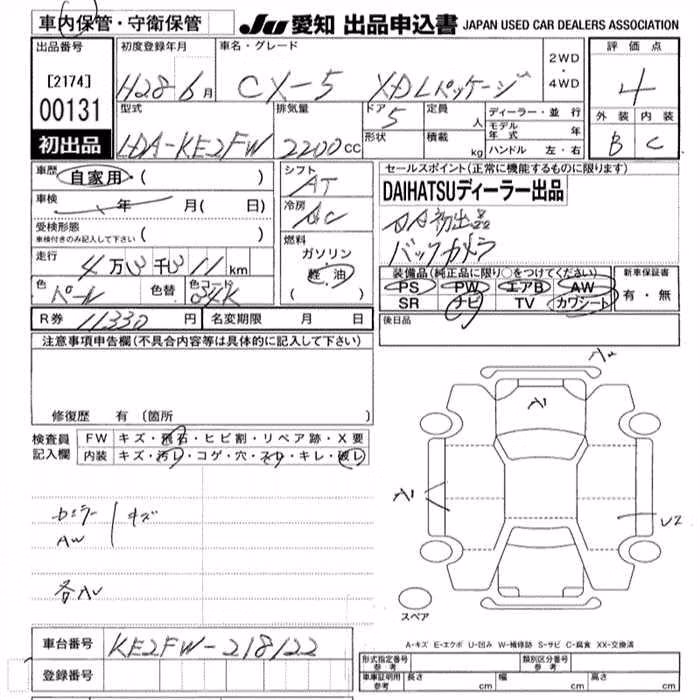 車内保管・守衛保管
JU 愛知 出品申込書 JAPAN USED CAR DEALERS ASSOCIATION
出品番号
[2174]
00131
初出品
初度登録年月
H28 6月
車名・グレード
CX-5 XDLパッケージ
2WD
・
4WD
評価点
4
外装 内装
B C
型式
LDA-KE2FW
排気量
2200 CC
ドア
5
定員
人
形状
積載
kg
ディーラー・並行
モデル年式 年
ハンドル 左・右
車歴
自家用 ( )
車検
年 月( 日)
受検形態
車検付きのみ記入して下さい ( )
走行
4万3千3 11 km
色
パール
色替
色コード
34K
シフト
AT
冷房
AC
燃料
ガソリン
軽油
( )
セールスポイント(正常に機能するものに限ります)
DAIHATSUディーラー出品
AA初出品
バックカメラ
装備品(純正品に限り○をつけてください)
PS PW エアB AW
SR ナビ TV カワシート
新車保証書
有・無
後日品
R券 11330 円
名変期限 月 日
注意事項申告欄(不具合内容等は具体的に記入して下さい)
修復歴 有 (箇所 )
検査員
記入欄
FW キズ・飛石・ヒビ割・リペア跡・X要
内装 キズ・汚レ・コゲ・穴・スレ・キレ・破レ
キズ
AW
A1
A1
U2
スペア
A-キズ E-エクボ U-凹み W-補修跡 S-サビ C-腐食 XX-交換済
車台番号 KE2FW-218122
登録番号
形式指定番号
参考
類別区分番号
参考
車庫証明用
参考
長さ cm
幅 cm
高さ cm